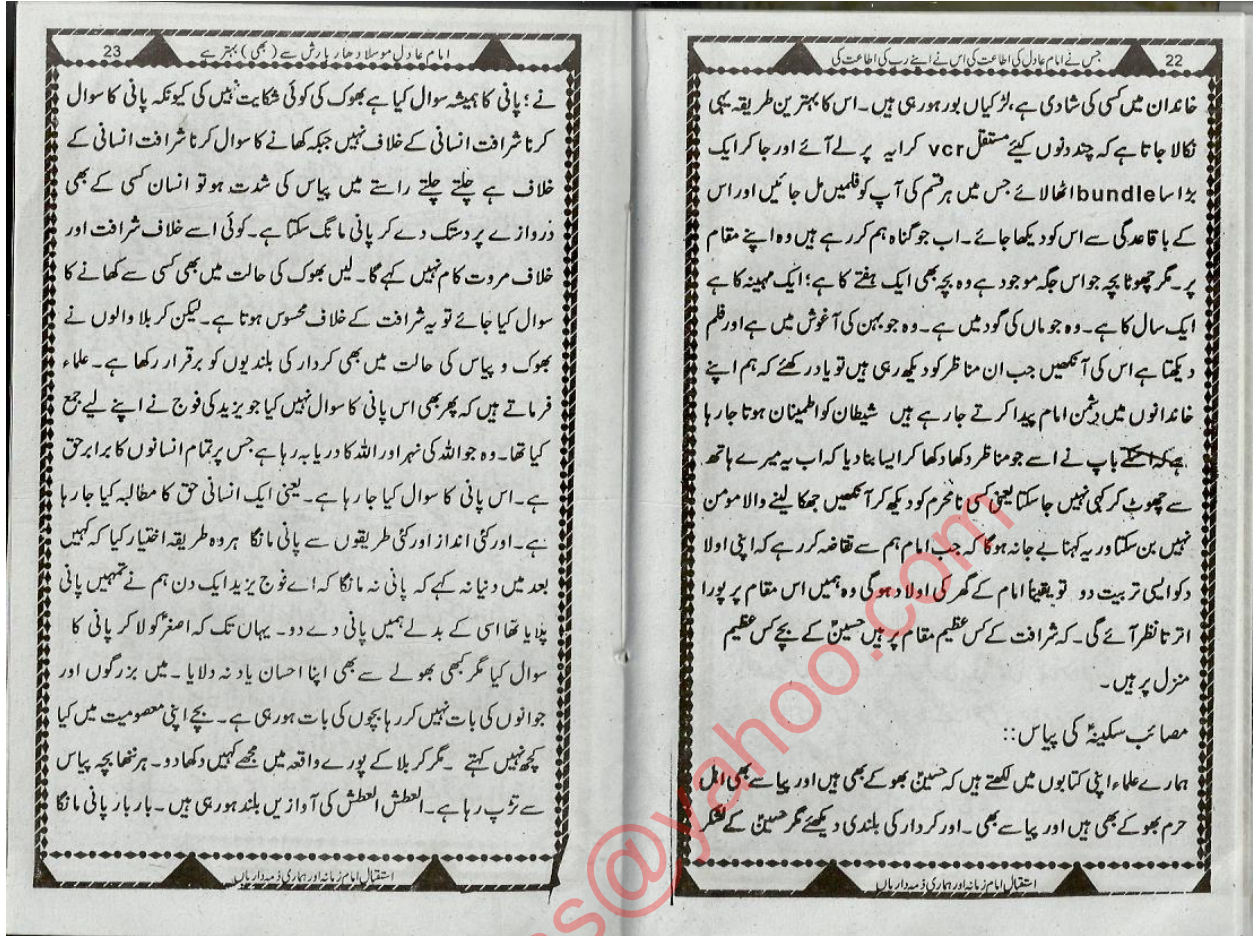 22
جس نے امام عادل کی اطاعت کی اس نے اپنے رب کی اطاعت کی
خاندان میں کسی کی شادی ہے، لڑکیاں بور ہو رہی ہیں۔ اس کا بہترین طریقہ یہی
نکالا جاتا ہے کہ چند دنوں کیئے مستقل vcr کرایہ پر لے آئے اور جا کر ایک
بڑا سا bundle اٹھا لائے جس میں ہر قسم کی آپ کو فلمیں مل جائیں اور اس
کے باقاعدگی سے اس کو دیکھا جائے۔ اب جو گناہ ہم کر رہے ہیں وہ اپنے مقام
پر۔ مگر چھوٹا بچہ جو اس جگہ موجود ہے وہ بچہ بھی ایک ہفتے کا ہے؛ ایک مہینہ کا ہے
ایک سال کا ہے۔ وہ جو ماں کی گود میں ہے۔ وہ جو بہن کی آغوش میں ہے اور فلم
دیکھتا ہے اس کی آنکھیں جب ان مناظر کو دیکھ رہی ہیں تو یاد رکھئے کہ ہم اپنے
خاندانوں میں دشمن امام پیدا کرتے جا رہے ہیں شیطان کو اطمینان ہوتا جا رہا
ہے کہ اسکے باپ نے اسے جو مناظر دکھا دکھا کر ایسا بنا دیا کہ اب یہ میرے ہاتھ
سے چھوٹ کر کہی نہیں جا سکتا یعنی کسی نامحرم کو دیکھ کر آنکھیں جھکا لینے والا مومن
نہیں بن سکتا ور یہ کہنا بے جا نہ ہوگا کہ جب امام ہم سے تقاضہ کر رہے کہ اپنی اولا
د کو ایسی تربیت دو تو یقیناً امام کے گھر کی اولاد ہوگی وہ ہمیں اس مقام پر پورا
اترتا نظر آئے گی۔ کہ شرافت کے کس عظیم مقام پر ہیں حسینؑ کے بچے کس عظیم
منزل پر ہیں۔
مصائب سکینہؑ کی پیاس::
ہمارے علماء اپنی کتابوں میں لکھتے ہیں کہ حسینؑ بھوکے بھی ہیں اور پیاسے بھی اہل
حرم بھوکے بھی ہیں اور پیاسے بھی۔ اور کردار کی بلندی دیکھئے مگر حسینؑ کے لشکر
استقبال امام زمانہ اور ہماری ذمہ داریاں
امام عادل موسلا دھار بارش سے (بھی) بہتر ہے
23
نے؛ پانی کا ہمیشہ سوال کیا ہے بھوک کی کوئی شکایت نہیں کی کیونکہ پانی کا سوال
کرنا شرافت انسانی کے خلاف نہیں جبکہ کھانے کا سوال کرنا شرافت انسانی کے
خلاف ہے چلتے چلتے راستے میں پیاس کی شدت ہو تو انسان کسی کے بھی
دروازے پر دستک دے کر پانی مانگ سکتا ہے۔ کوئی اسے خلاف شرافت اور
خلاف مروت کام نہیں کہے گا۔ لیں بھوک کی حالت میں بھی کسی سے کھانے کا
سوال کیا جائے تو یہ شرافت کے خلاف محسوس ہوتا ہے۔ لیکن کربلا والوں نے
بھوک و پیاس کی حالت میں بھی کردار کی بلندیوں کو برقرار رکھا ہے۔ علماء
فرماتے ہیں کہ پھر بھی اس پانی کا سوال نہیں کیا جو یزید کی فوج نے اپنے لیے جمع
کیا تھا۔ وہ جو اللہ کی نہر اور اللہ کا دریا بہ رہا ہے جس پر تمام انسانوں کا برابر حق
ہے۔ اس پانی کا سوال کیا جا رہا ہے۔ یعنی ایک انسانی حق کا مطالبہ کیا جا رہا
ہے۔ اور کئی انداز اور کئی طریقوں سے پانی مانگا ہر وہ طریقہ اختیار کیا کہ کہیں
بعد میں دنیا نہ کہے کہ پانی نہ مانگا کہ اے فوج یزید ایک دن ہم نے تمہیں پانی
پلایا تھا اسی کے بدلے ہمیں پانی دے دو۔ یہاں تک کہ اصغرؑ کو لا کر پانی کا
سوال کیا مگر کبھی بھولے سے بھی اپنا احسان یاد نہ دلایا۔ میں بزرگوں اور
جوانوں کی بات نہیں کر رہا بچوں کی بات ہو رہی ہے۔ بچے اپنی معصومیت میں کیا
کچھ نہیں کہتے۔ مگر کربلا کے پورے واقعہ میں مجھے کہیں دکھا دو۔ ہر ننھا بچہ پیاس
سے تڑپ رہا ہے۔ العطش العطش کی آوازیں بلند ہو رہی ہیں۔ بار بار پانی مانگا
استقبال امام زمانہ اور ہماری ذمہ داریاں
s@yahoo.com